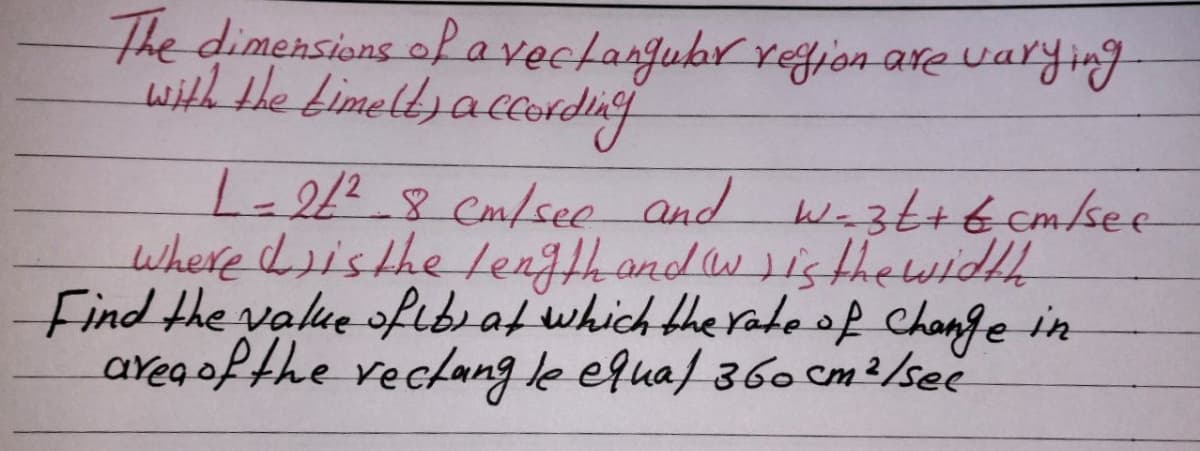 The dimensions of a rectangular region are varying
with the time(t) according
L=2t²-8 cm/sec and w=3t+6 cm/sec
where (L) is the length and (w) is the width
Find the value of (t) at which the rate of change in
area of the rectangle equal 360 cm²/sec